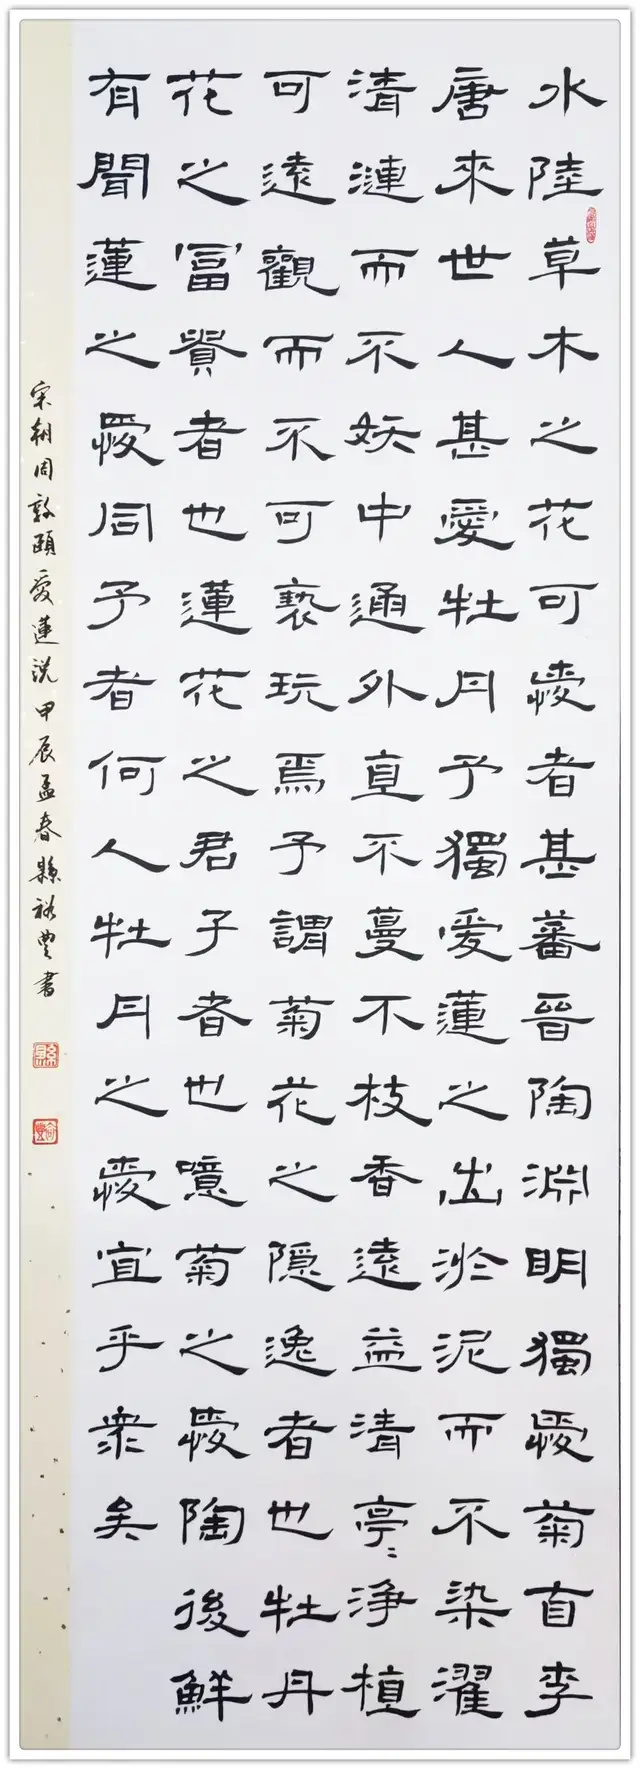 水陸草木之花可愛者甚蕃晉陶淵明獨愛菊自李
唐來世人甚愛牡丹予獨愛蓮之出淤泥而不染濯
清漣而不妖中通外直不蔓不枝香遠益清亭〻淨植
可遠觀而不可褻玩焉予謂菊花之隱逸者也牡丹
花之富貴者也蓮花之君子者也噫菊之愛陶後鮮
有聞蓮之愛同予者何人牡丹之愛宜乎衆矣
宋朝周敦頤愛蓮説甲辰孟春縣豐書